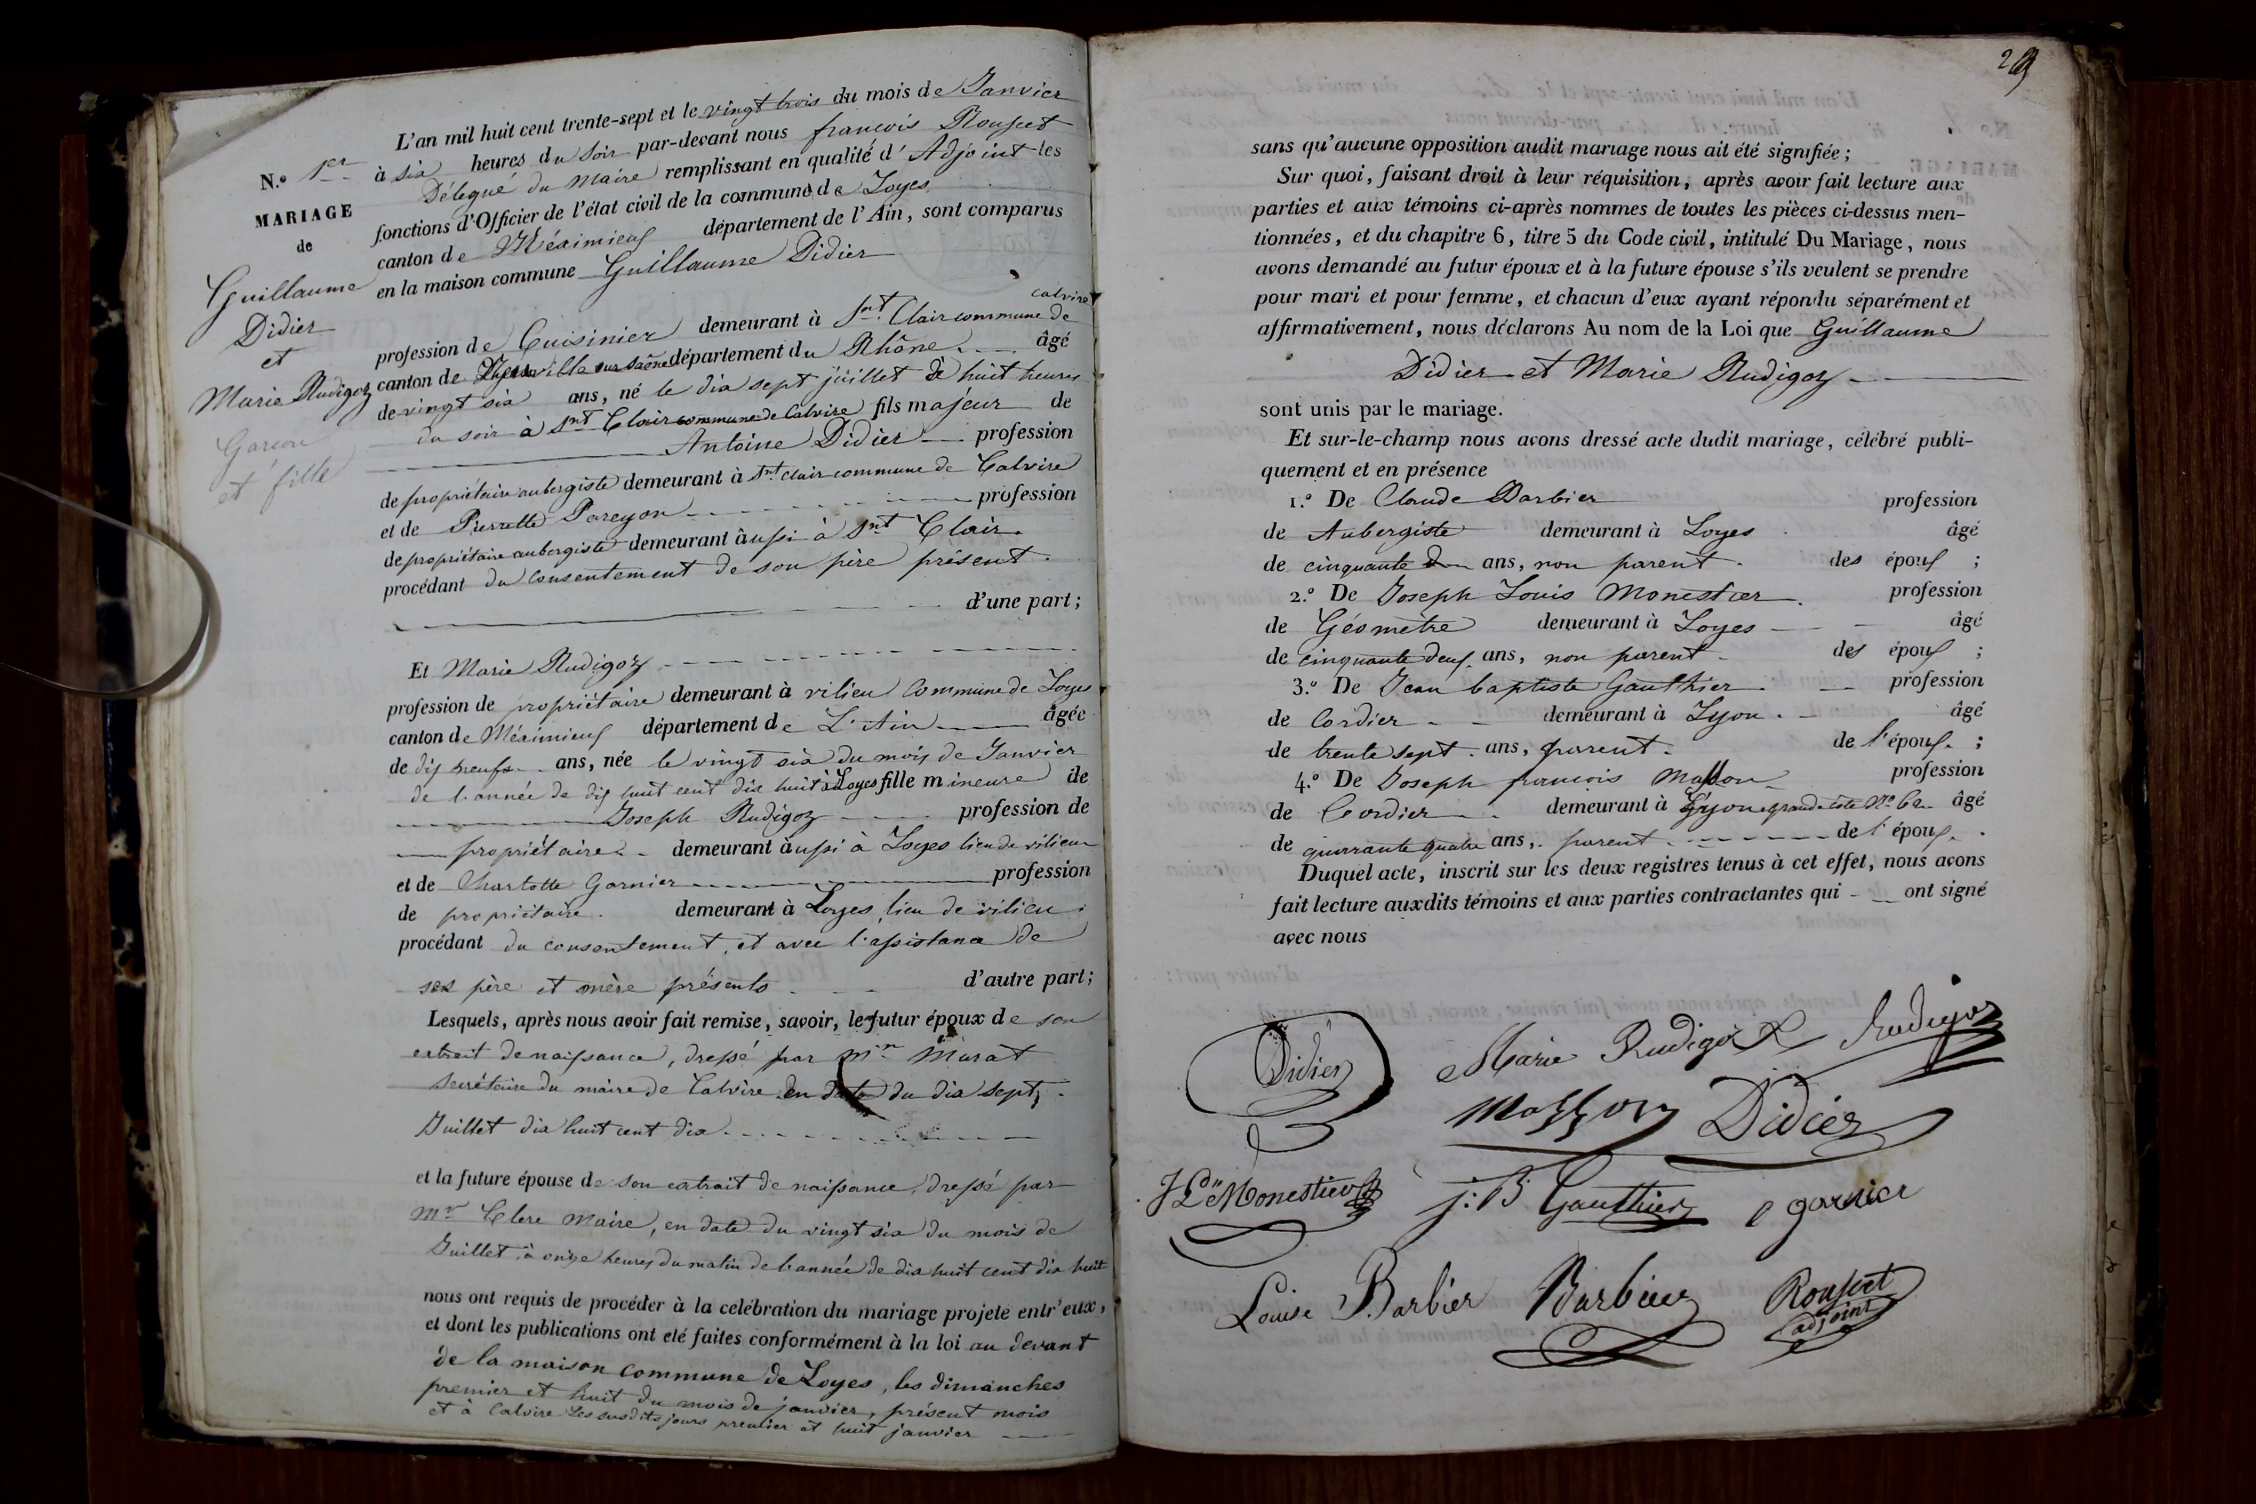 N.o 1er
MARIAGE
de
Guillaume
Didier
et
Marie Rudigoz
Garcon
et fille
L'an mil huit cent trente-sept et le vingt trois du mois de Janvier
à six heures du Soir par-devant nous francois Rousset
Délegué du Maire remplissant en qualité d'Adjoint les
fonctions d'Officier de l'état civil de la commune de Loyes
canton de Méximieux département de l'Ain, sont comparus
en la maison commune Guillaume Didier
calvire
profession de Cuisinier demeurant à Snt. Clair commune de
canton de ville sur Saône département du Rhône âgé
de vingt six ans, né le dix sept juillet à huit heures
du soir à Snt Clair commune de Calvire fils majeur de
Antoine Didier profession
de propriétaire aubergiste demeurant à Snt. Clair commune de Calvire
et de Pierrette Pareyon profession
de propriétaire aubergiste demeurant àussi à Snt Clair.
procédant du consentement de son père présent.
d'une part;
Et Marie Rudigoz
profession de propriétaire demeurant à vilieu Commune de Loyes
canton de Méximieux département de L'Ain âgée
de dix neuf ans, née le vingt six du mois de Janvier
de l'année de dix huit cent dix huit à Loyes fille mineure de
Joseph Rudigoz profession de
propriétaire demeurant àussi à Loyes lieu de vilieu
et de Charlotte Garnier profession
de propriétaire. demeurant à Loyes, lieu de vilieu
procédant du consentement, et avec l'assistance de
ses père et mère présents d'autre part;
Lesquels, après nous avoir fait remise, savoir, le futur époux de son
extrait de naissance, dressé par Mr. Murat
secrétaire du maire de Calvire en date du dix sept
Juillet dix huit cent dix
et la future épouse de son extrait de naissance, dressé par
Mr Clere Maire, en date du vingt six du mois de
Juillet à onze heures du matin de l'année de dix huit cent dix huit
nous ont requis de procéder à la celébration du mariage projeté entr'eux,
et dont les publications ont été faites conformément à la loi au devant
de la maison commune de Loyes, les dimanches
premier et huit du mois de janvier, présent mois
et à Calvire Les susdits jours premier et huit janvier
sans qu'aucune opposition audit mariage nous ait été signifiée;
Sur quoi, faisant droit à leur réquisition, après avoir fait lecture aux
parties et aux témoins ci-après nommes de toutes les pièces ci-dessus men-
tionnées, et du chapitre 6, titre 5 du Code civil, intitulé Du Mariage, nous
avons demandé au futur époux et à la future épouse s'ils veulent se prendre
pour mari et pour femme, et chacun d'eux ayant répondu séparément et
affirmativement, nous déclarons Au nom de la Loi que Guillaume
Didier et Marie Rudigoz
sont unis par le mariage.
Et sur-le-champ nous avons dressé acte dudit mariage, célébré publi-
quement et en présence
1.o De Claude Barbier profession
de Aubergiste demeurant à Loyes âgé
de cinquante ans, non parent. des époux ;
2.o De Joseph Louis Monestier profession
de Géomètre demeurant à Loyes âgé
de cinquante deux ans, non parent des époux ;
3.o De Jean baptiste Gauthier profession
de Cordier demeurant à Lyon âgé
de trente sept ans, parent. de l'époux ;
4.o De Joseph francois Masson profession
de Cordier demeurant à Lyon grande côte No. 62 âgé
de quarrante quatre ans, parent de l'époux.
Duquel acte, inscrit sur les deux registres tenus à cet effet, nous avons
fait lecture auxdits témoins et aux parties contractantes qui ont signé
avec nous
Didier Marie Rudigoz Rudigoz
Masson Didier
JLs Monestier j. B Gauthier garnier
Louise Barbier Barbier Rousset
adjoint